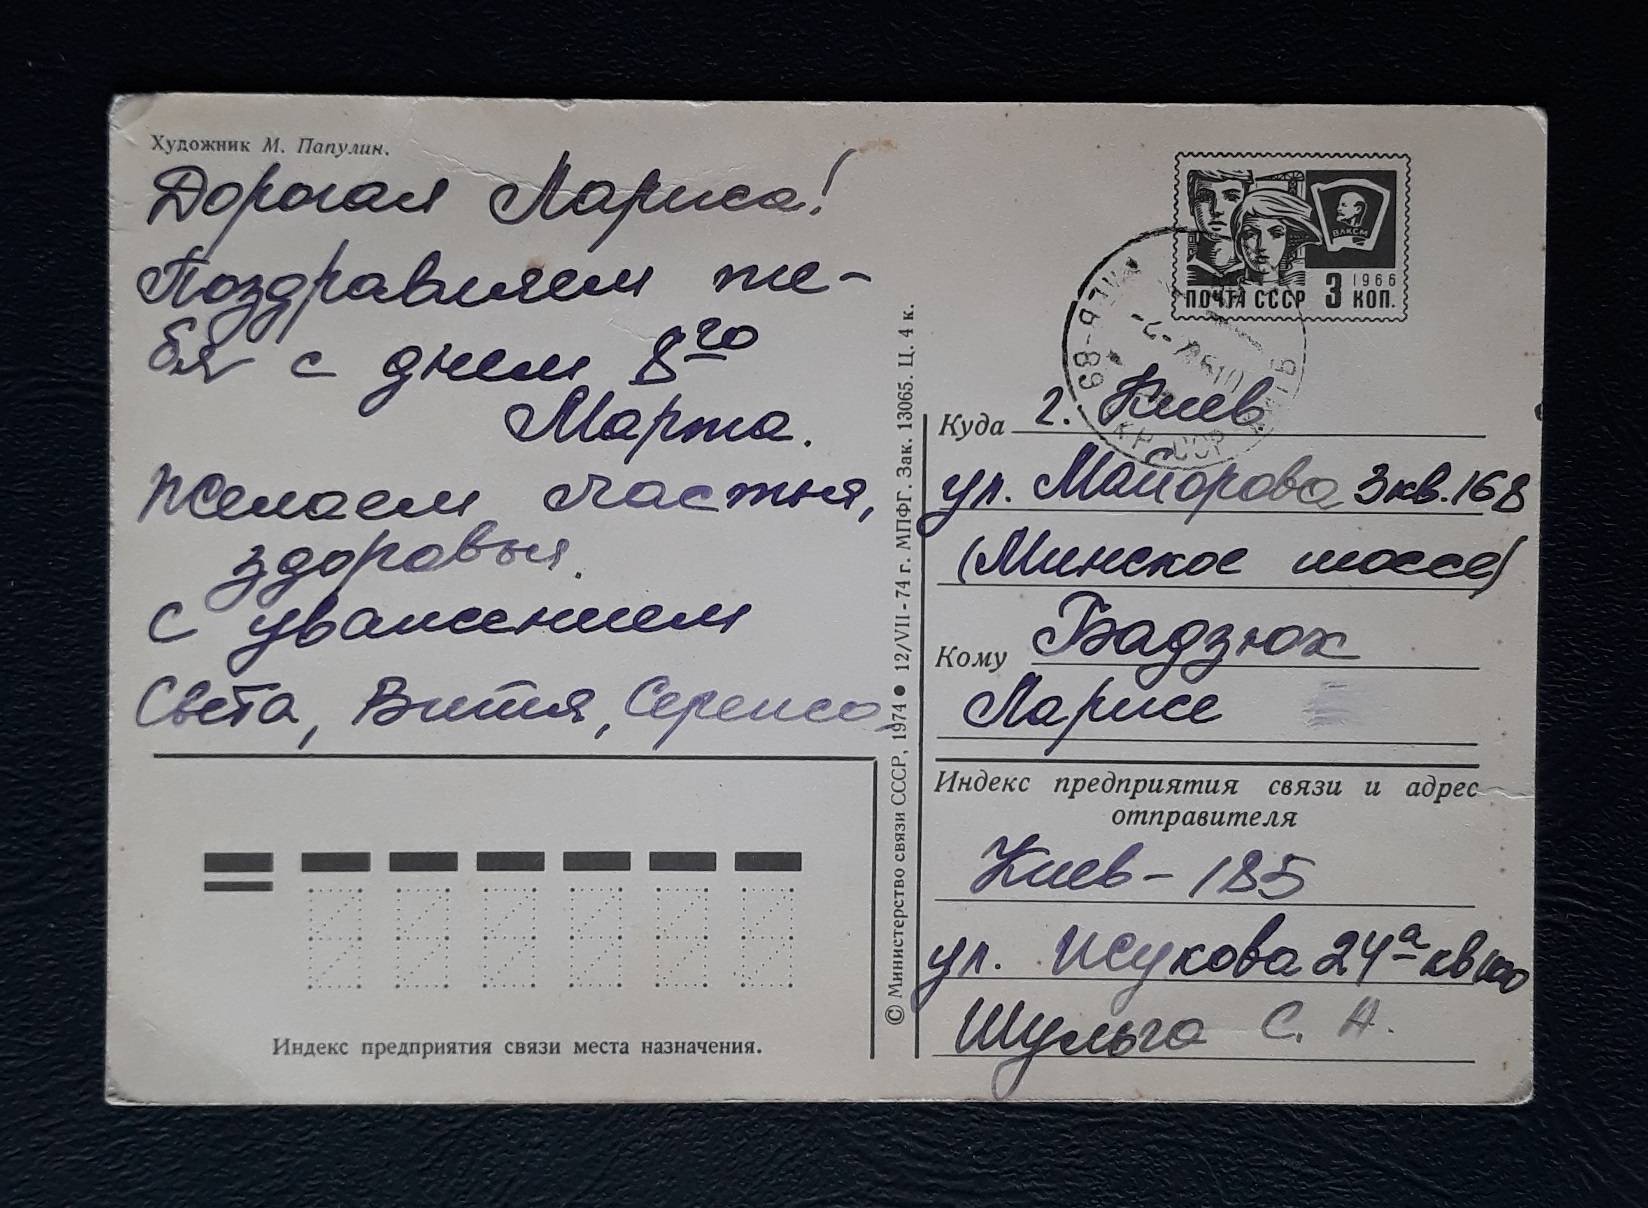 Художник М. Папулин.
Дорогая Лариса!
Поздравляем те-
бя с днем 8го
Марта.
Желаем счастья,
здоровья.
С уважением
Света, Витя, Сережа
ВЛКСМ
1966
ПОЧТА СССР 3 КОП.
КИЕВ-69
Куда г. Киев
ул. Майорова 3 кв. 168
(Минское шоссе)
Кому Бадзюх
Ларисе
Индекс предприятия связи и адрес
отправителя
Киев-185
ул. Жукова 24а кв 100
Шульга С. А.
© Министерство связи СССР, 1974 ● 12/VII-74 г. МПФГ. Зак. 13065. Ц. 4 к.
Индекс предприятия связи места назначения.